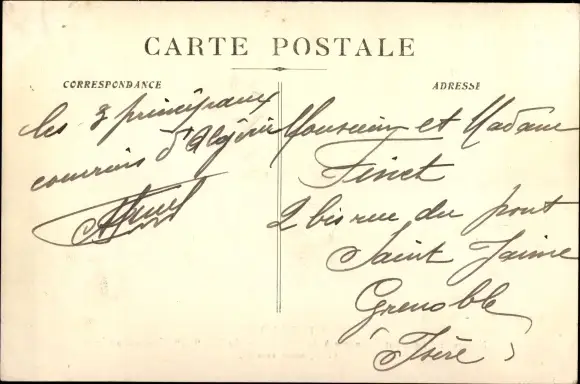 CARTE POSTALE
CORRESPONDANCE
les 3 principaux
courriers d'Algérie
ADRESSE
Monsieur et Madame
Finet
2 bis rue du pont
Saint Jaime
Grenoble
(Isère)